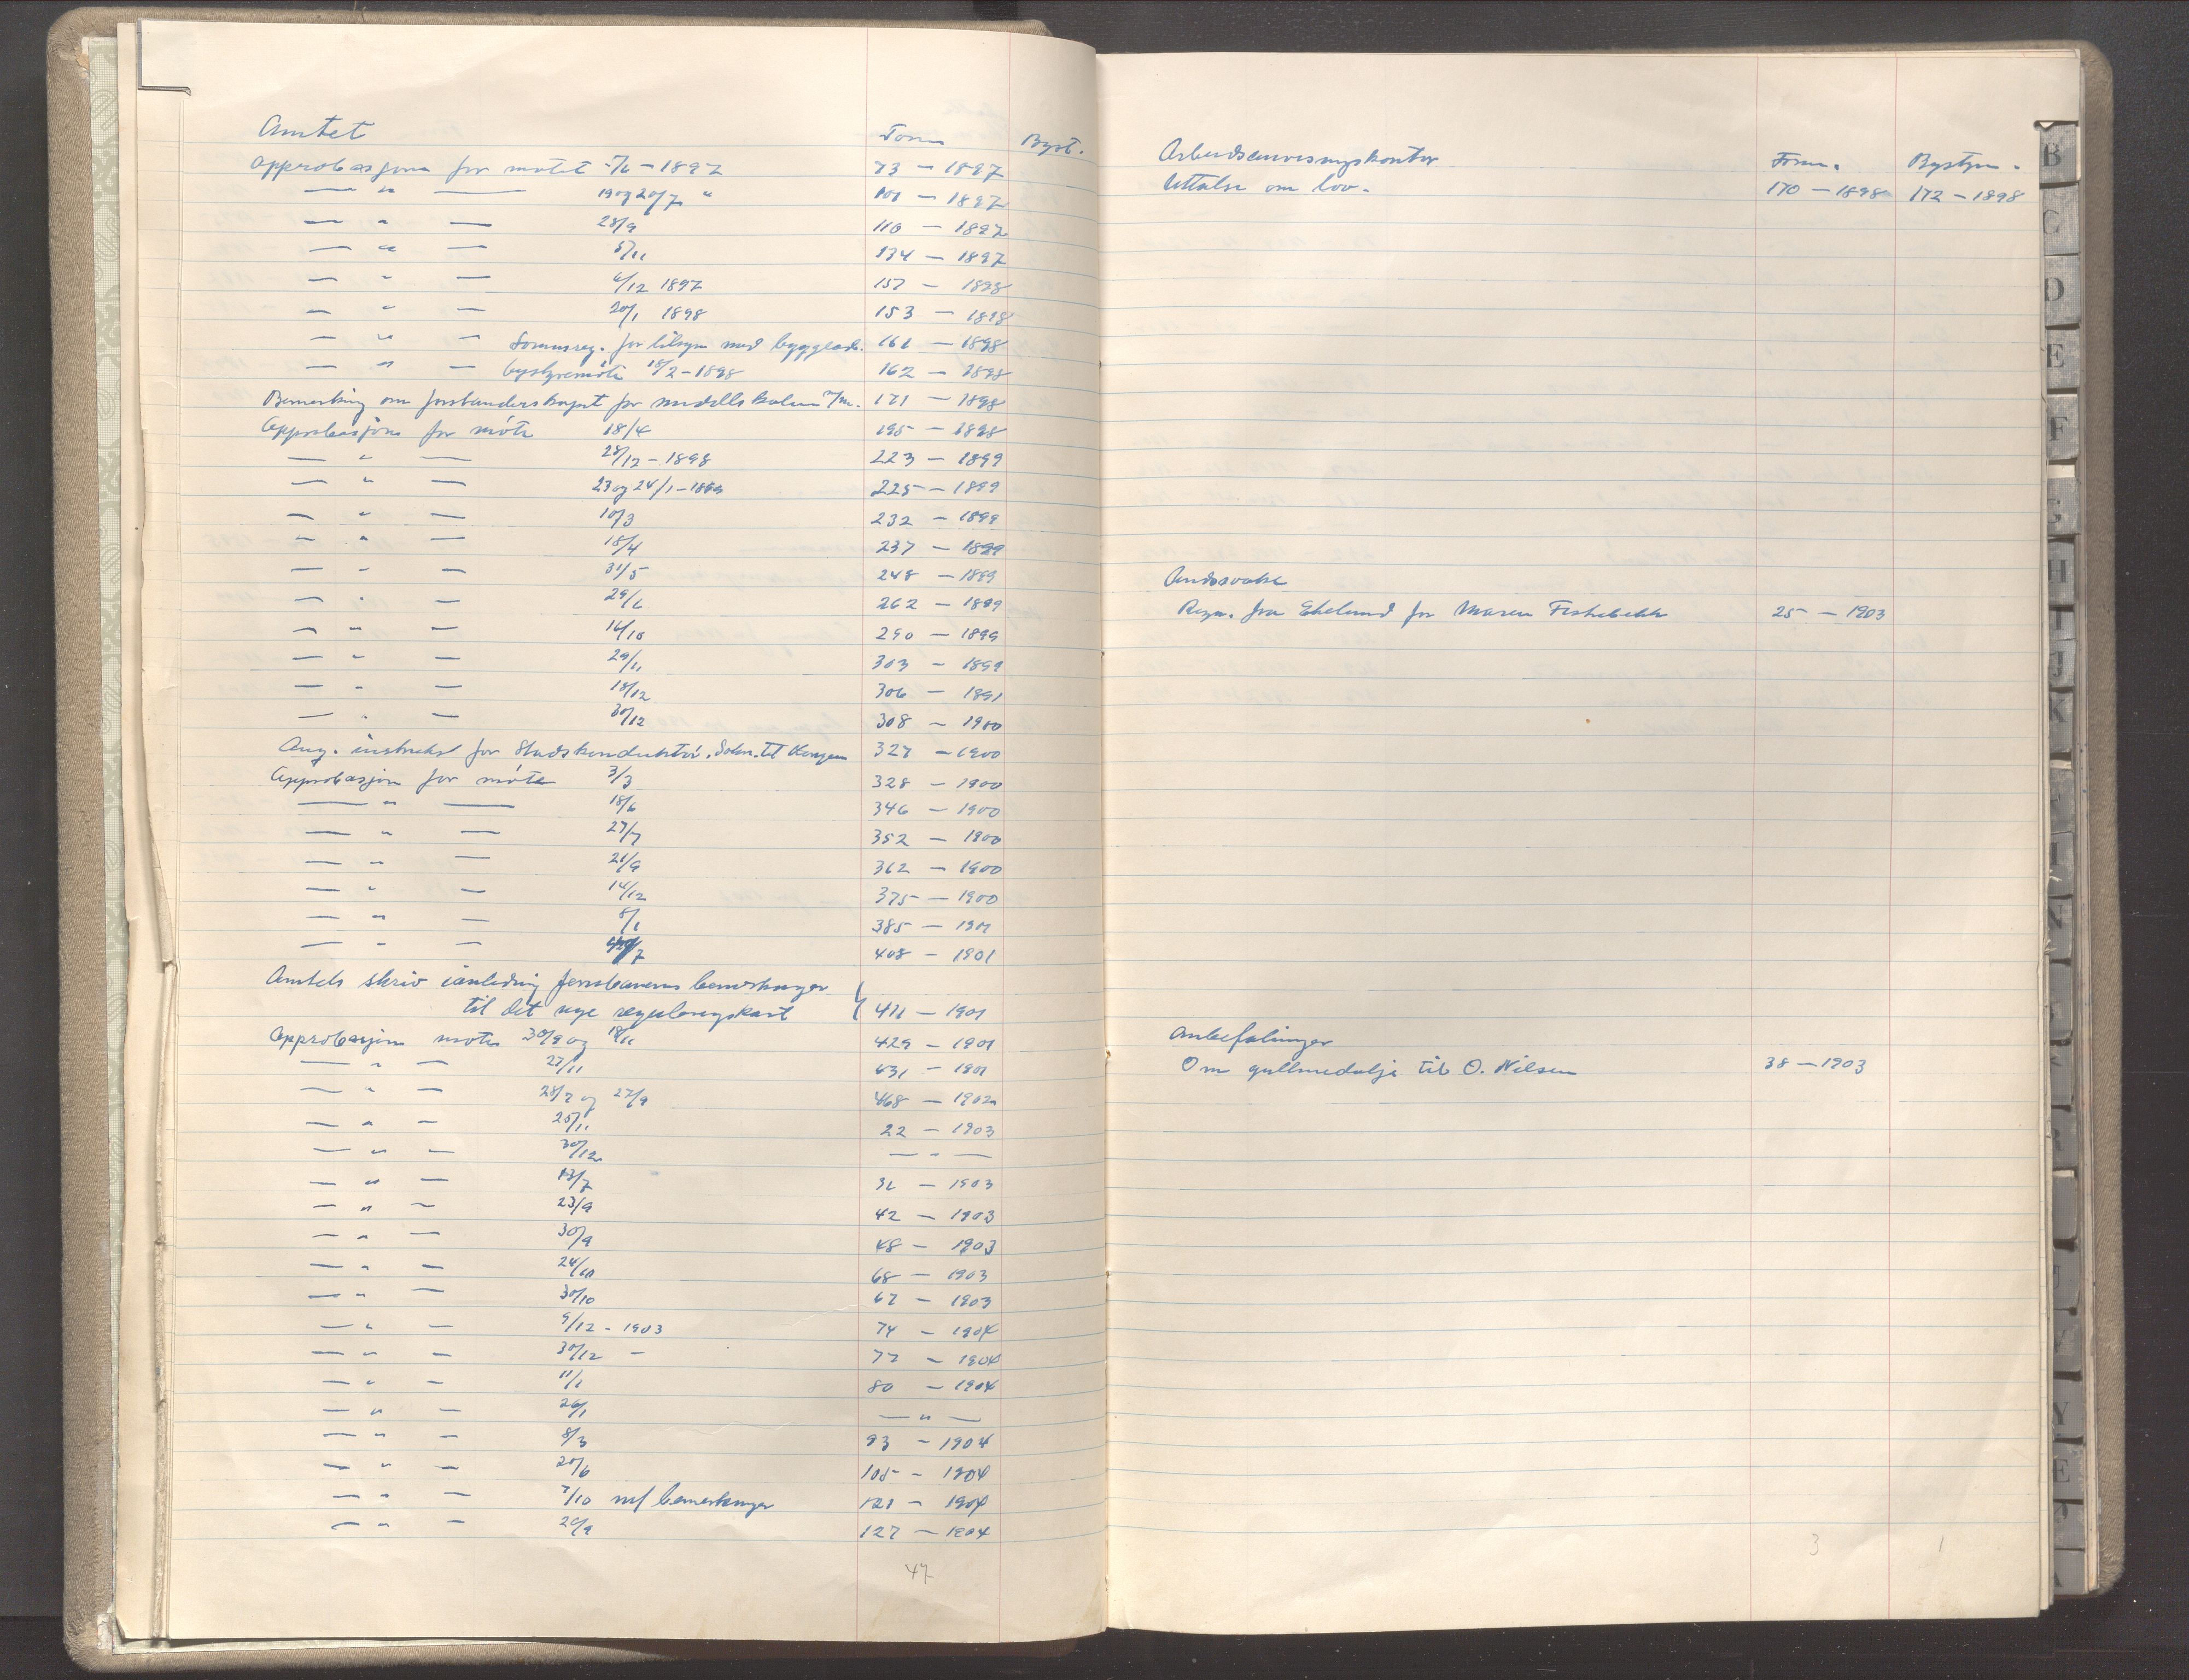 Amtet Form Byst.
Approbasjon for møtet 5/6 – 1897 73 – 1897
— " — 19 og 20/7 " 101 – 1897
— " — 28/9 110 – 1897
— " — 5/11 134 – 1897
— " — 6/12 1897 157 – 1898
— " — 20/1 1898 153 – 1898
— " — for tilsyn med 161 – 1898
— " — bystyremøte 18/2 – 1898 162 – 1898
Bemerkning om forstanderskapet for 171 – 1898
Approbasjon for møte 18/4 195 – 1898
— " — 28/12 – 1898 223 – 1899
— " — 23 og 24/1 – 1899 225 – 1899
— " — 10/3 232 – 1899
— " — 18/4 237 – 1899
— " — 31/5 248 – 1899
— " — 29/6 262 – 1899
— " — 16/10 290 – 1899
— " — 29/11 303 – 1899
— " — 18/12 306 – 1891
— " — 30/12 308 – 1900
Ang. instruks for Stadskonduktør. til Kongen 327 – 1900
Approbasjon for møte 3/3 328 – 1900
— " — 18/6 346 – 1900
— " — 27/7 352 – 1900
— " — 21/9 362 – 1900
— " — 14/12 375 – 1900
— " — 8/1 385 – 1901
— " — 408 – 1901
Amtets skriv i anledning jernbanens bemerkninger
til det nye reguleringskart 411 – 1901
Approbasjon møte 30/9 og 18/11 429 – 1901
— " — 27/11 431 – 1901
— " — 28/7 og 27/9 468 – 1902
— " — 25/11 22 – 1903
— " — 30/12 — " —
— " — 13/7 31 – 1903
— " — 23/9 42 – 1903
— " — 30/9 48 – 1903
— " — 24/10 68 – 1903
— " — 30/10 67 – 1903
— " — 9/12 – 1903 74 – 1904
— " — 30/12 – 77 – 1904
— " — 11/1 80 – 1904
— " — 26/1 — " —
— " — 8/3 93 – 1904
— " — 20/6 105 – 1904
— " — 7/10 m/ bemerkninger 121 – 1904
— " — 20/9 127 – 1904
47
Arbeidsanvisningskontor Form. Bystyre.
Uttalse om lov. 170 – 1898 172 – 1898
Åndssvake
Regn. fra Ekelund for Maren Fiskebekk 25 – 1903
Anbefalinger
Om gullmedalje til O. Nilsen 38 – 1903
3 1
B
C
D
E
F
G
H
I
J
K
N
Y